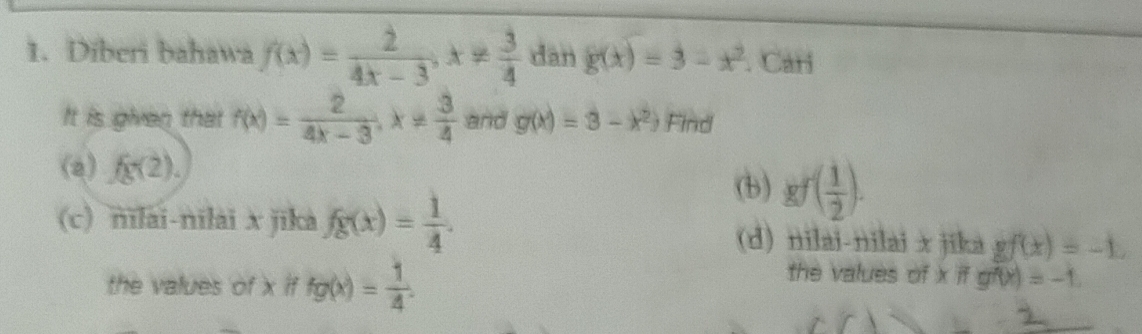 1. Diberi bahawa f(x) = 2/(4x − 3), x ≠ 3/4 dan g(x) = 3 − x². Cari
It is given that f(x) = 2/(4x − 3), x ≠ 3/4 and g(x) = 3 − x², Find
(a) fg(2).
(b) gf(1/2).
(c) nilai-nilai x jika fg(x) = 1/4.
the values of x if fg(x) = 1/4.
(d) nilai-nilai x jika gf(x) = −1.
the values of x if gf(x) = −1.